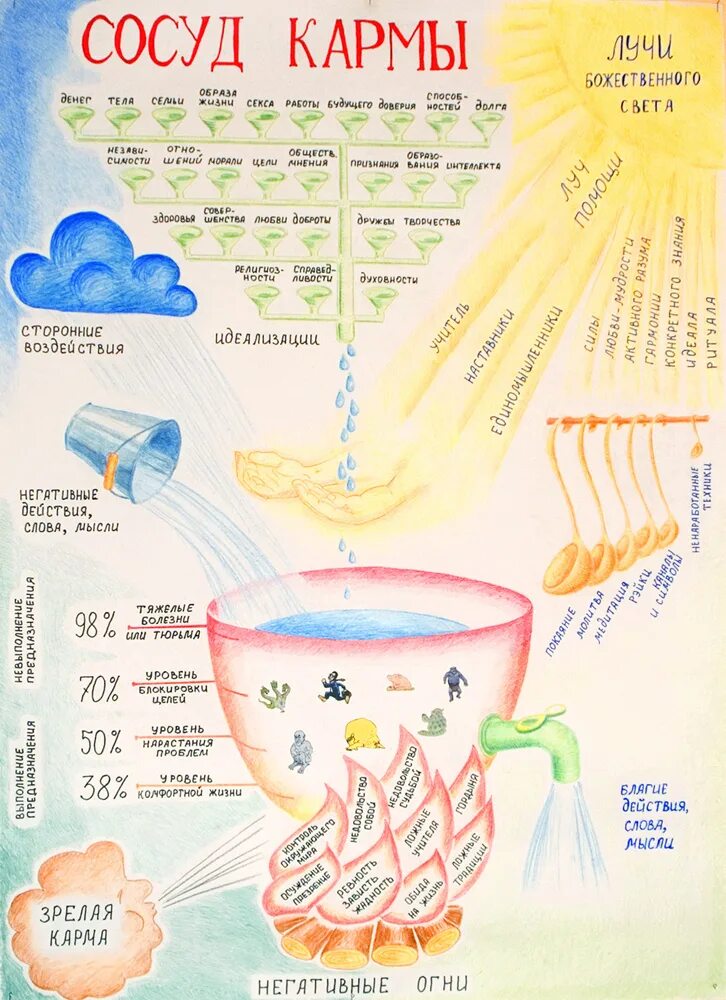 СОСУД КАРМЫ
ЛУЧИ
БОЖЕСТВЕННОГО
СВЕТА
ДЕНЕГ
ТЕЛА
СЕМЬИ
ОБРАЗА
ЖИЗНИ
СЕКСА
РАБОТЫ
БУДУЩЕГО
ДОВЕРИЯ
СПОСОБ-
НОСТЕЙ
ДОЛГА
НЕЗАВИ-
СИМОСТИ
ОТНО-
ШЕНИЙ
МОРАЛИ
ЦЕЛИ
ОБЩЕСТВ.
МНЕНИЯ
ПРИЗНАНИЯ
ОБРАЗО-
ВАНИЯ
ИНТЕЛЛЕКТА
ЗДОРОВЬЯ
СОВЕР-
ШЕНСТВА
ЛЮБВИ
ДОБРОТЫ
ДРУЖБЫ
ТВОРЧЕСТВА
РЕЛИГИОЗ-
НОСТИ
СПРАВЕД-
ЛИВОСТИ
ДУХОВНОСТИ
ИДЕАЛИЗАЦИИ
ЛУЧ
ПОМОЩИ
УЧИТЕЛЬ
НАСТАВНИКИ
ЕДИНОМЫШЛЕННИКИ
СИЛЫ
ЛЮБВИ-МУДРОСТИ
АКТИВНОГО РАЗУМА
ГАРМОНИИ
КОНКРЕТНОГО ЗНАНИЯ
ИДЕАЛА
РИТУАЛА
СТОРОННИЕ
ВОЗДЕЙСТВИЯ
НЕГАТИВНЫЕ
ДЕЙСТВИЯ,
СЛОВА, МЫСЛИ
НЕНАРАБОТАННЫЕ
ТЕХНИКИ
ПОКАЯНИЕ
МОЛИТВА
МЕДИТАЦИЯ
РЭЙКИ
КАНАЛЫ
И СИМВОЛЫ
НЕВЫПОЛНЕНИЕ
ПРЕДНАЗНАЧЕНИЯ
98% ТЯЖЕЛЫЕ
БОЛЕЗНИ
ИЛИ ТЮРЬМА
70% УРОВЕНЬ
БЛОКИРОВКИ
ЦЕЛЕЙ
ВЫПОЛНЕНИЕ
ПРЕДНАЗНАЧЕНИЯ
50% УРОВЕНЬ
НАРАСТАНИЯ
ПРОБЛЕМ
38% УРОВЕНЬ
КОМФОРТНОЙ ЖИЗНИ
БЛАГИЕ
ДЕЙСТВИЯ,
СЛОВА,
МЫСЛИ
КОНТРОЛЬ
ОКРУЖАЮЩЕГО
МИРА
НЕДОВОЛЬСТВО
СОБОЙ
НЕДОВОЛЬСТВО
СУДЬБОЙ
ГОРДЫНЯ
ЛОЖНЫЕ
УЧИТЕЛЯ
ЛОЖНЫЕ
ТРАДИЦИИ
ОСУЖДЕНИЕ
ПРЕЗРЕНИЕ
РЕВНОСТЬ
ЗАВИСТЬ
ЖАДНОСТЬ
ОБИДА
НА ЖИЗНЬ
ЗРЕЛАЯ
КАРМА
НЕГАТИВНЫЕ ОГНИ